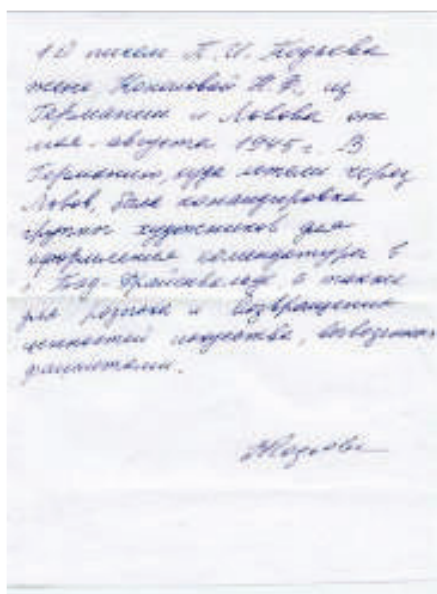 10 писем П. И.
жене Н. Ф. из
Германии и Львова от
мая - августа 1945 г. В
Германию, куда летали через
Львов, была командировка
группы художников для
оформления комендатуры в
г. а также
для розыска и возвращения
ценностей искусства, вывезенных
фашистами.